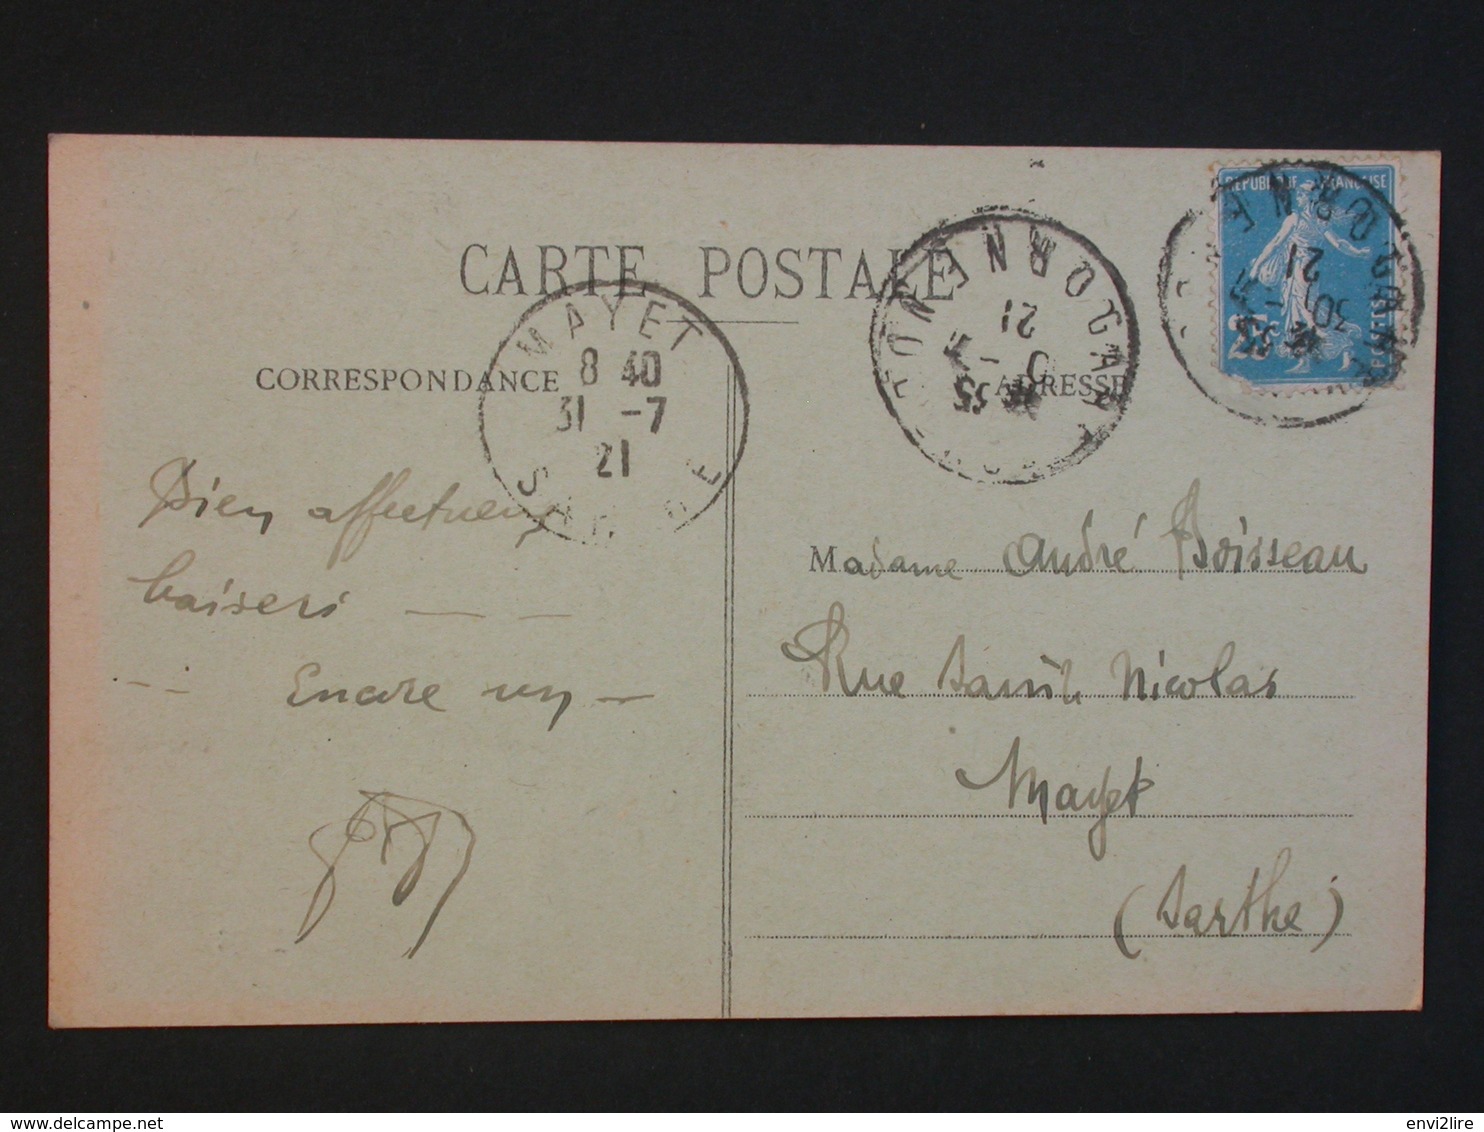 CARTE POSTALE
CORRESPONDANCE
ADRESSE
RÉPUBLIQUE FRANÇAISE
25c
30 -7
21
ORNE
GARE
21
ORNE
MAYET
8 40
31 -7
21
SARTHE
Bien affectueux
baisers — —
— — Encore un —
Madame André Boisseau
Rue Saint Nicolas
Mayet
(Sarthe)
envi2lire